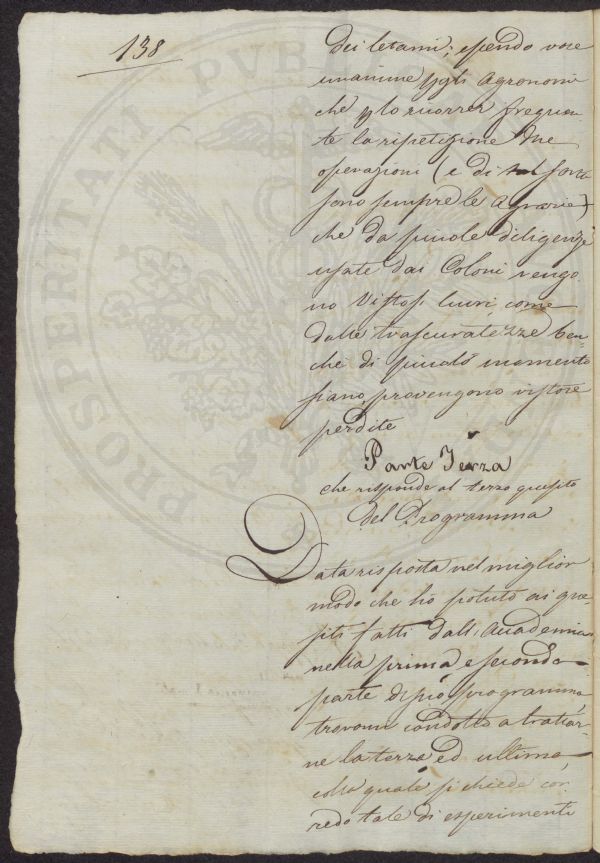 138
dei letami; essendo voce
unanime pgli Agronomi
che plo ricorrer frequen-
te la ripetizione
operazioni (e di tal sorta
sono sempre le Agrarie)
che da picciole diligenze
usate dai Coloni vengo
no vistosi lucri, come
dalle trascuratezze ben-
chè di piccolo momento
siano, provengono vistose
perdite
Parte Terza
che risponde al terzo quesito
del Programma
Data risposta nel miglior
modo che ho potuto ai que-
siti fatti dall'Accademia
nella prima e seconda
parte di suo programma
trovomi condotto a trattar-
ne la terza ed ultima,
colla quale si chiede cor
redo tale di esperimenti
PROSPERITATI PVBLICAE